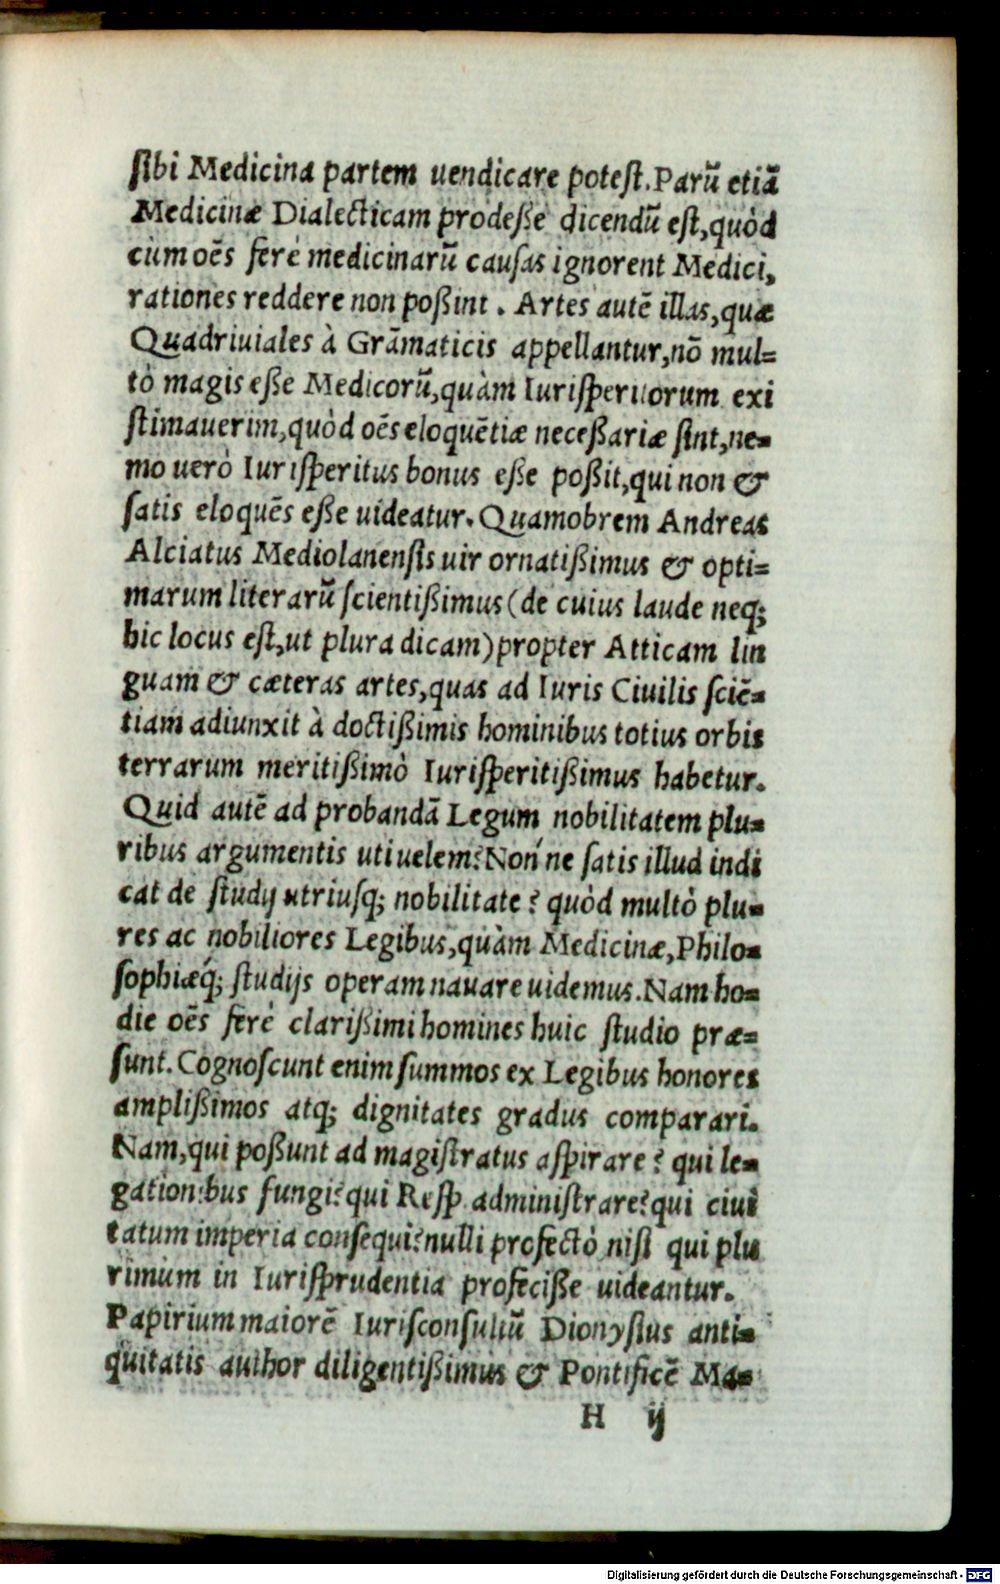 ſibi Medicina partem uendicare poteſt. Parū etiã
Medicinæ Dialecticam prodeſſe dicendū eſt, quòd
cùm oēs ferè medicinarū cauſas ignorent Medici,
rationes reddere non poßint. Artes autē illas, quæ
Quadriuiales à Grãmaticis appellantur, nō mul=
tò magis eſſe Medicorū, quàm Iuriſperitorum exi
ſtimauerim, quòd oēs eloquētiæ neceßariæ ſint, ne=
mo uerò Iuriſperitus bonus eße poßit, qui non &
ſatis eloquēs eße uideatur. Quamobrem Andreas
Alciatus Mediolanenſis uir ornatißimus & opti=
marum literarū ſcientißimus (de cuius laude neq;
hic locus eſt, ut plura dicam) propter Atticam lin
guam & cæteras artes, quas ad Iuris Ciuilis ſciē=
tiam adiunxit à doctißimis hominibus totius orbis
terrarum meritißimò Iuriſperitißimus habetur.
Quid autē ad probandã Legum nobilitatem plu=
ribus argumentis uti uelem? Nón ne ſatis illud indi
cat de ſtudij utriuſq; nobilitate? quòd multò plu=
res ac nobiliores Legibus, quàm Medicinæ, Philo=
ſophiæq́; ſtudijs operam nauare uidemus. Nam ho=
die oēs ferè clarißimi homines huic ſtudio præ=
ſunt. Cognoſcunt enim ſummos ex Legibus honores
amplißimos atq; dignitates gradus comparari.
Nam, qui poßunt ad magiſtratus aſpirare? qui le=
gationibus fungi? qui Reſp. adminiſtrare? qui ciui
tatum imperia conſequi? nulli profectò niſi qui plu
rimùm in Iuriſprudentia profeciße uideantur.
Papirium maiorē Iuriſconſultū Dionyſius anti=
quitatis author diligentißimus & Pontificē Ma=
H ij
Digitalisierung gefördert durch die Deutsche Forschungsgemeinschaft - DFG